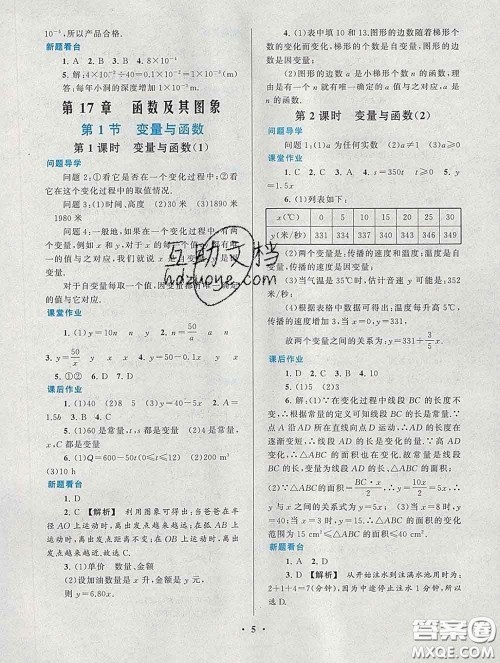 10⁻¹,所以产品合格.
新题看台
1. A 2. D 3. B 4. 8×10⁻³
5. 解:4×10⁻²÷40=0.1×10⁻²=1×10⁻³
(m). 答:每年小洞的深度增加 1×10⁻³ m.
第17章 函数及其图象
第1节 变量与函数
第1课时 变量与函数(1)
问题导学
问题2:①看它是否在一个变化过程中;②看
它在这个变化过程中的取值情况.
问题3:(1)时间、高度 (2)30 米 (3)1890
米 1980 米
问题4:一般地,如果在一个变化过程中,有两
个变量,例如 x 和 y,对于 x 的每一个值,y 都有唯
一的值与之对应,
对于自变量每取一个值,因变量都有
的值与它对应.
课堂作业
1. (1)y=10n n y
3. y=50/x x y 4. y=50-0.1x
5. ①②④ 6. D 7. D
课后作业
1. (1)40 (2)8 (3)5 2. ①②④ 4. A=
1.5b 5. D 6. D
(2)4 是常量,
x,C 都是变量.
6. (1)Q=600-50t (2)0≤t≤12
(3)10 h
新题看台
1. D
2. C 【解析】 利用图象可得出:当爸爸在半
径 AO 上运动时,离出发点越来越远;在弧 AB 上运
动时,距离不变;在 OB 上运动时,离出发点越来
越近.故选 C.
3. (1)单价 数量、金额
(2)设加油数量是 x 升,金额是 y 元,
则 y=6.80x.
4. (1)表中填 10 和 13. 图形的边数随着梯形个
数的变化而变化,梯形的个数是自变量,图形的边数
是因变量;
(2)图形的边数 a 是小梯形个数 n 的函数,
因为每给出一个 n 的值,a 都有唯一的值与之对应.
第2课时 变量与函数(2)
问题导学
问题1:(1)a 为任何实数 (2)a≠4 (3)a≥4
课堂作业
1. A 2. B 3. A 4. s=350t t≥0 5. y
=1.5x
6. (1)列表如下:
x(℃) 0 5 10 15 20 25 30
y(米/秒) 331 334 337 340 343 346 349
(2)两个变量是:传播的速度和温度;温度是自
变量,传播的速度是因变量;
(3)当气温是 35℃时,估计音速 y 可能是:
352 米/秒;
(4)根据表格中数据可得出:温度每升高 5℃,
传播的速度增加 3,当 x=0 时,y=331,
故两个变量之间的关系为:y=331+3/5 x.
课后作业
1. C 2. C 3. B 4. C 5. 5
6. 解:(1)∵在变化过程中线段 BC 的长是不变
的,根据常量的定义可知线段 BC 的长度是常量;∵
点 A 沿 AD 所在的直线向点 D 运动,∴线段 AD 的长度在
逐渐变短,∴线段 AD 的长度是变量;∵高 AD 变
化,∴△ABC 的面积也在变化,∴△ABC 的面积是变
量;(2)∵△ABC 的面积=BC·x/2,∴y=5x,
y 与 x 之间的关系式为:y=5x;(3)当 x=8 时,y=
40;当 x=3 时,y=15,∴△ABC 的面积的变化
范围是 15 cm²≤△ABC 的面积≤40 cm².
新题看台
1. D 【解析】 从开始注水到注满水池用时为:
2+1+2+2=7(分钟),因变量 t 的取值范围是
0≤t≤7.故选 D.
互助文档
hdzuoye.com
• 5 •
答案圈
MXQE.COM